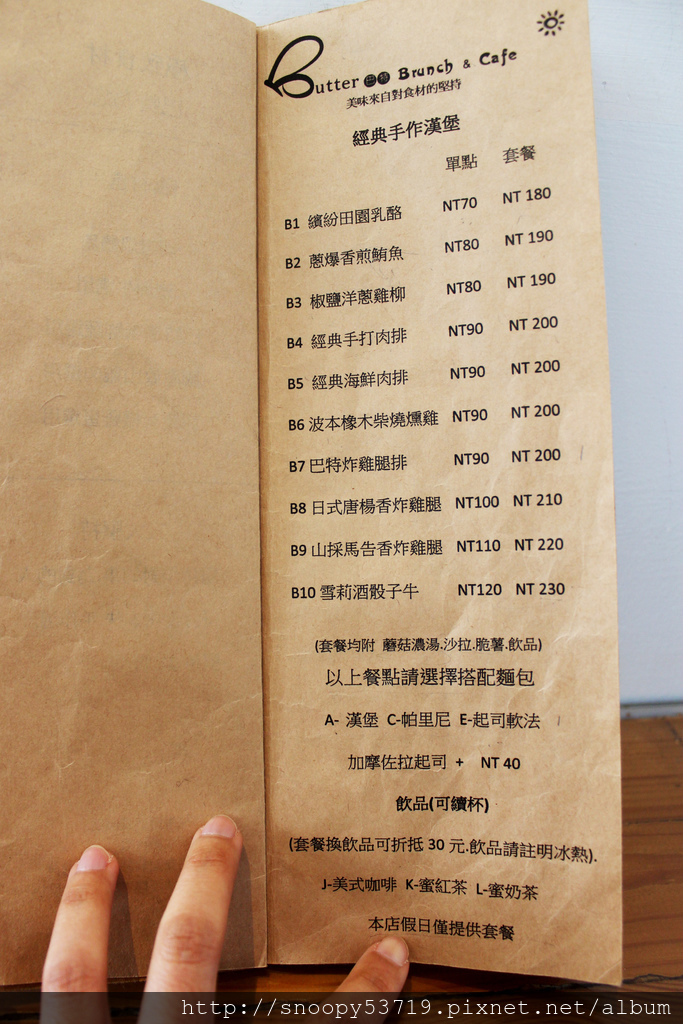 Butter 巴特 Brunch & Cafe
美味來自對食材的堅持
經典手作漢堡
單點 套餐
B1 繽紛田園乳酪 NT70 NT 180
B2 蔥爆香煎鮪魚 NT80 NT 190
B3 椒鹽洋蔥雞柳 NT80 NT 190
B4 經典手打肉排 NT90 NT 200
B5 經典海鮮肉排 NT90 NT 200
B6 波本橡木柴燒燻雞 NT90 NT 200
B7 巴特炸雞腿排 NT90 NT 200
B8 日式唐楊香炸雞腿 NT100 NT 210
B9 山採馬告香炸雞腿 NT110 NT 220
B10 雪莉酒骰子牛 NT120 NT 230
(套餐均附 蘑菇濃湯.沙拉.脆薯.飲品)
以上餐點請選擇搭配麵包
A- 漢堡 C-帕里尼 E-起司軟法
加摩佐拉起司 + NT 40
飲品(可續杯)
(套餐換飲品可折抵 30 元.飲品請註明冰熱).
J-美式咖啡 K-蜜紅茶 L-蜜奶茶
本店假日僅提供套餐
http://snoopy53719.pixnet.net/album